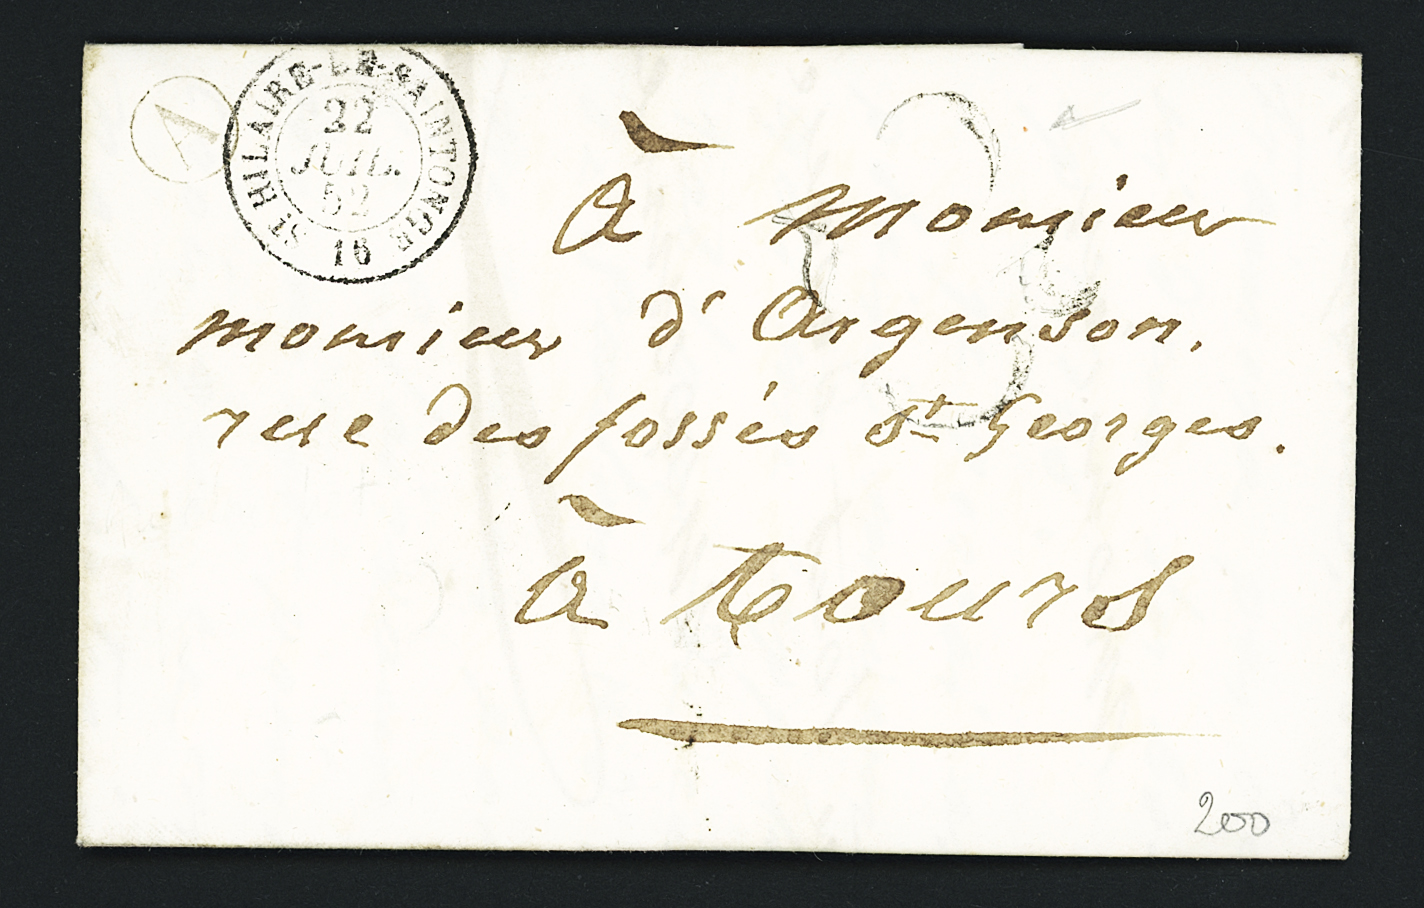 A
ST HILAIRE-LE-SAINTONGE
22
JUIL.
52
16
À Monsieur
monsieur d'Argenson.
rue des fossés St Georges.
à tours
200